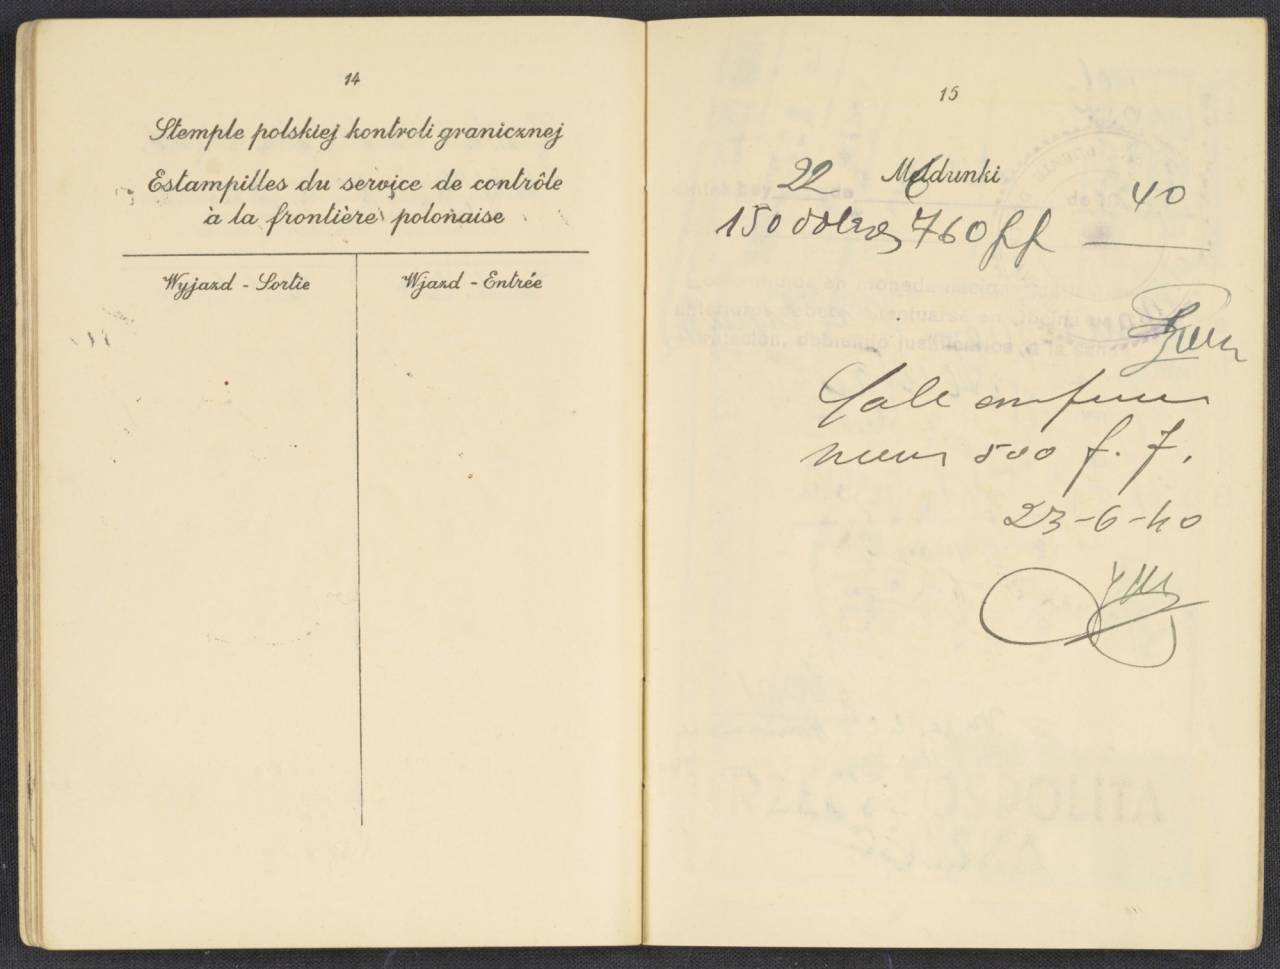 14
Stemple polskiej kontroli granicznej
Estampilles du service de contrôle
à la frontière polonaise
Wyjazd - Sortie
Wjazd - Entrée
15
Meldunki
22 40
150 dolares 760 ff
Sale con
500 f. f.
23-6-40